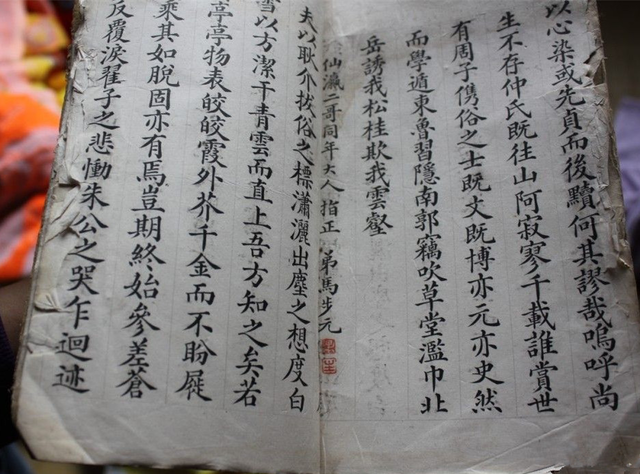 以心染或先貞而後黷何其謬哉嗚呼尚
生不存仲氏既往山阿寂寥千載誰賞世
有周子儁俗之士既文既博亦元亦史然
而學遁東魯習隱南郭竊吹草堂濫巾北
岳誘我松桂欺我雲壑
仙瀛二哥同年大人指正 弟馬步元
夫以耿介拔俗之標瀟灑出塵之想度白
雪以方潔干青雲而直上吾方知之矣若
亭亭物表皎皎霞外芥千金而不盼屣
乘其如脫固亦有焉豈期終始參差蒼
反覆淚翟子之悲慟朱公之哭乍迴迹